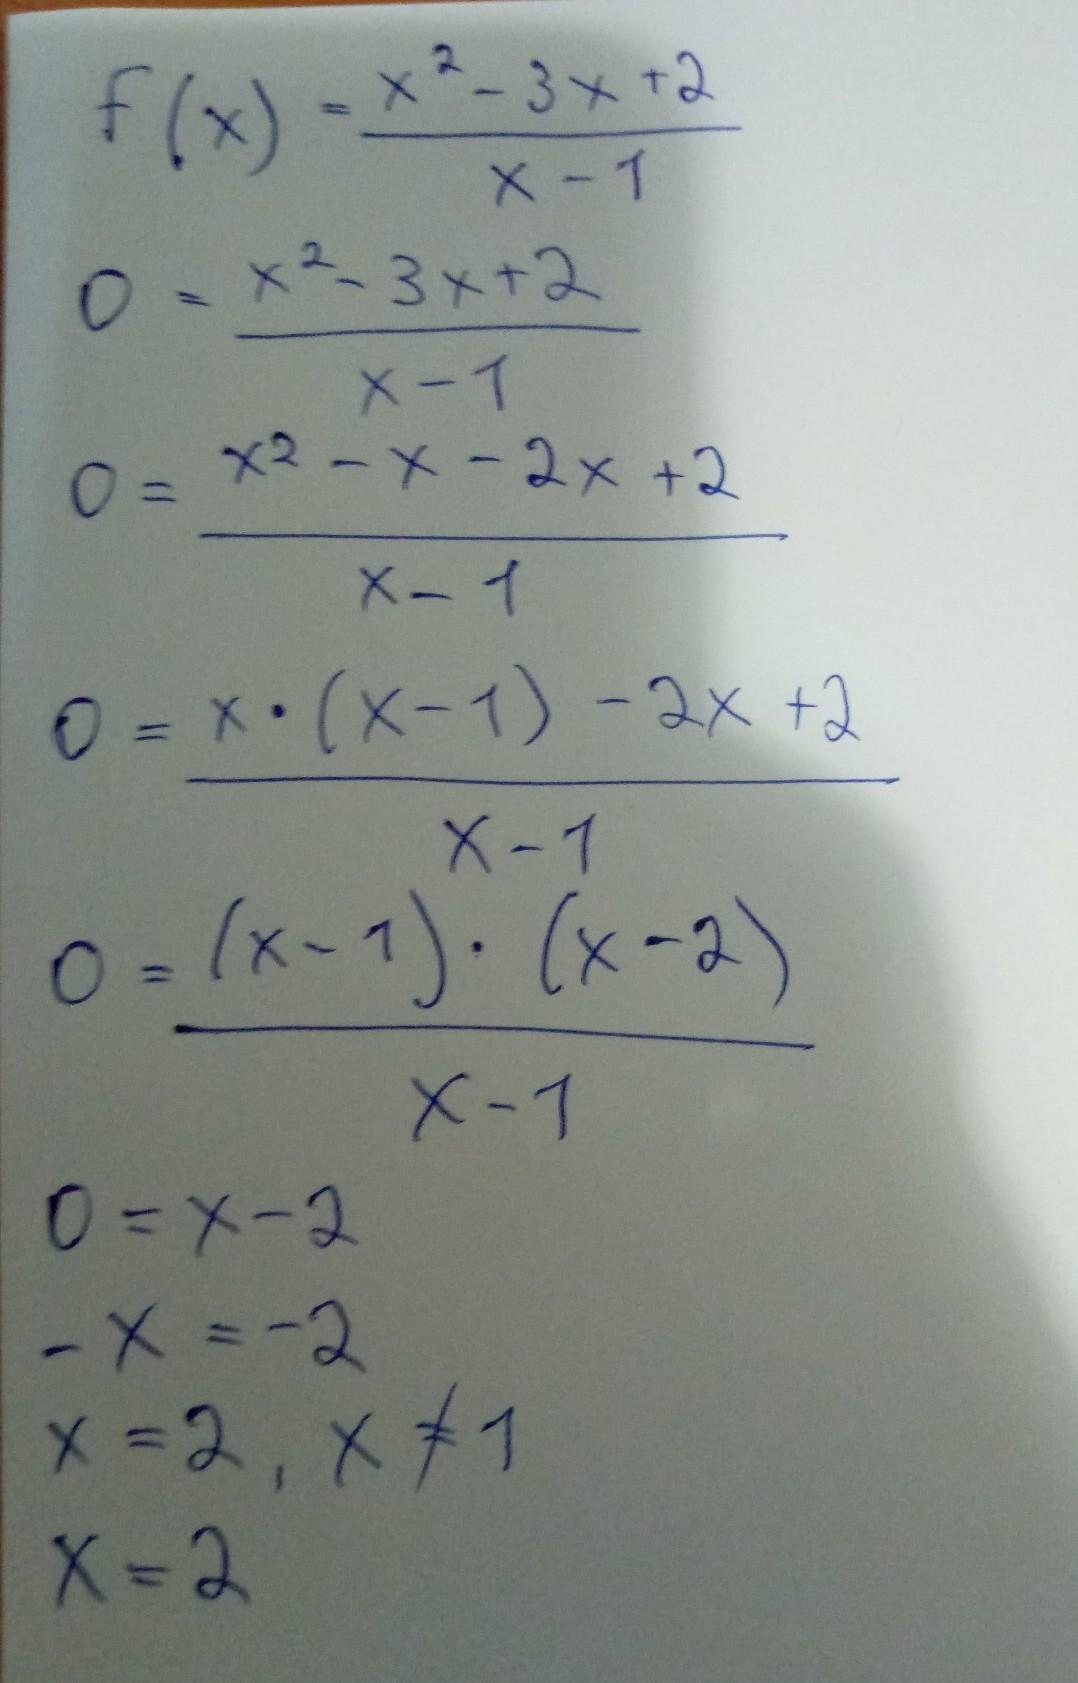 f(x) = (x² - 3x + 2)/(x - 1)
0 = (x² - 3x + 2)/(x - 1)
0 = (x² - x - 2x + 2)/(x - 1)
0 = (x · (x - 1) - 2x + 2)/(x - 1)
0 = ((x - 1) · (x - 2))/(x - 1)
0 = x - 2
-x = -2
x = 2, x ≠ 1
x = 2